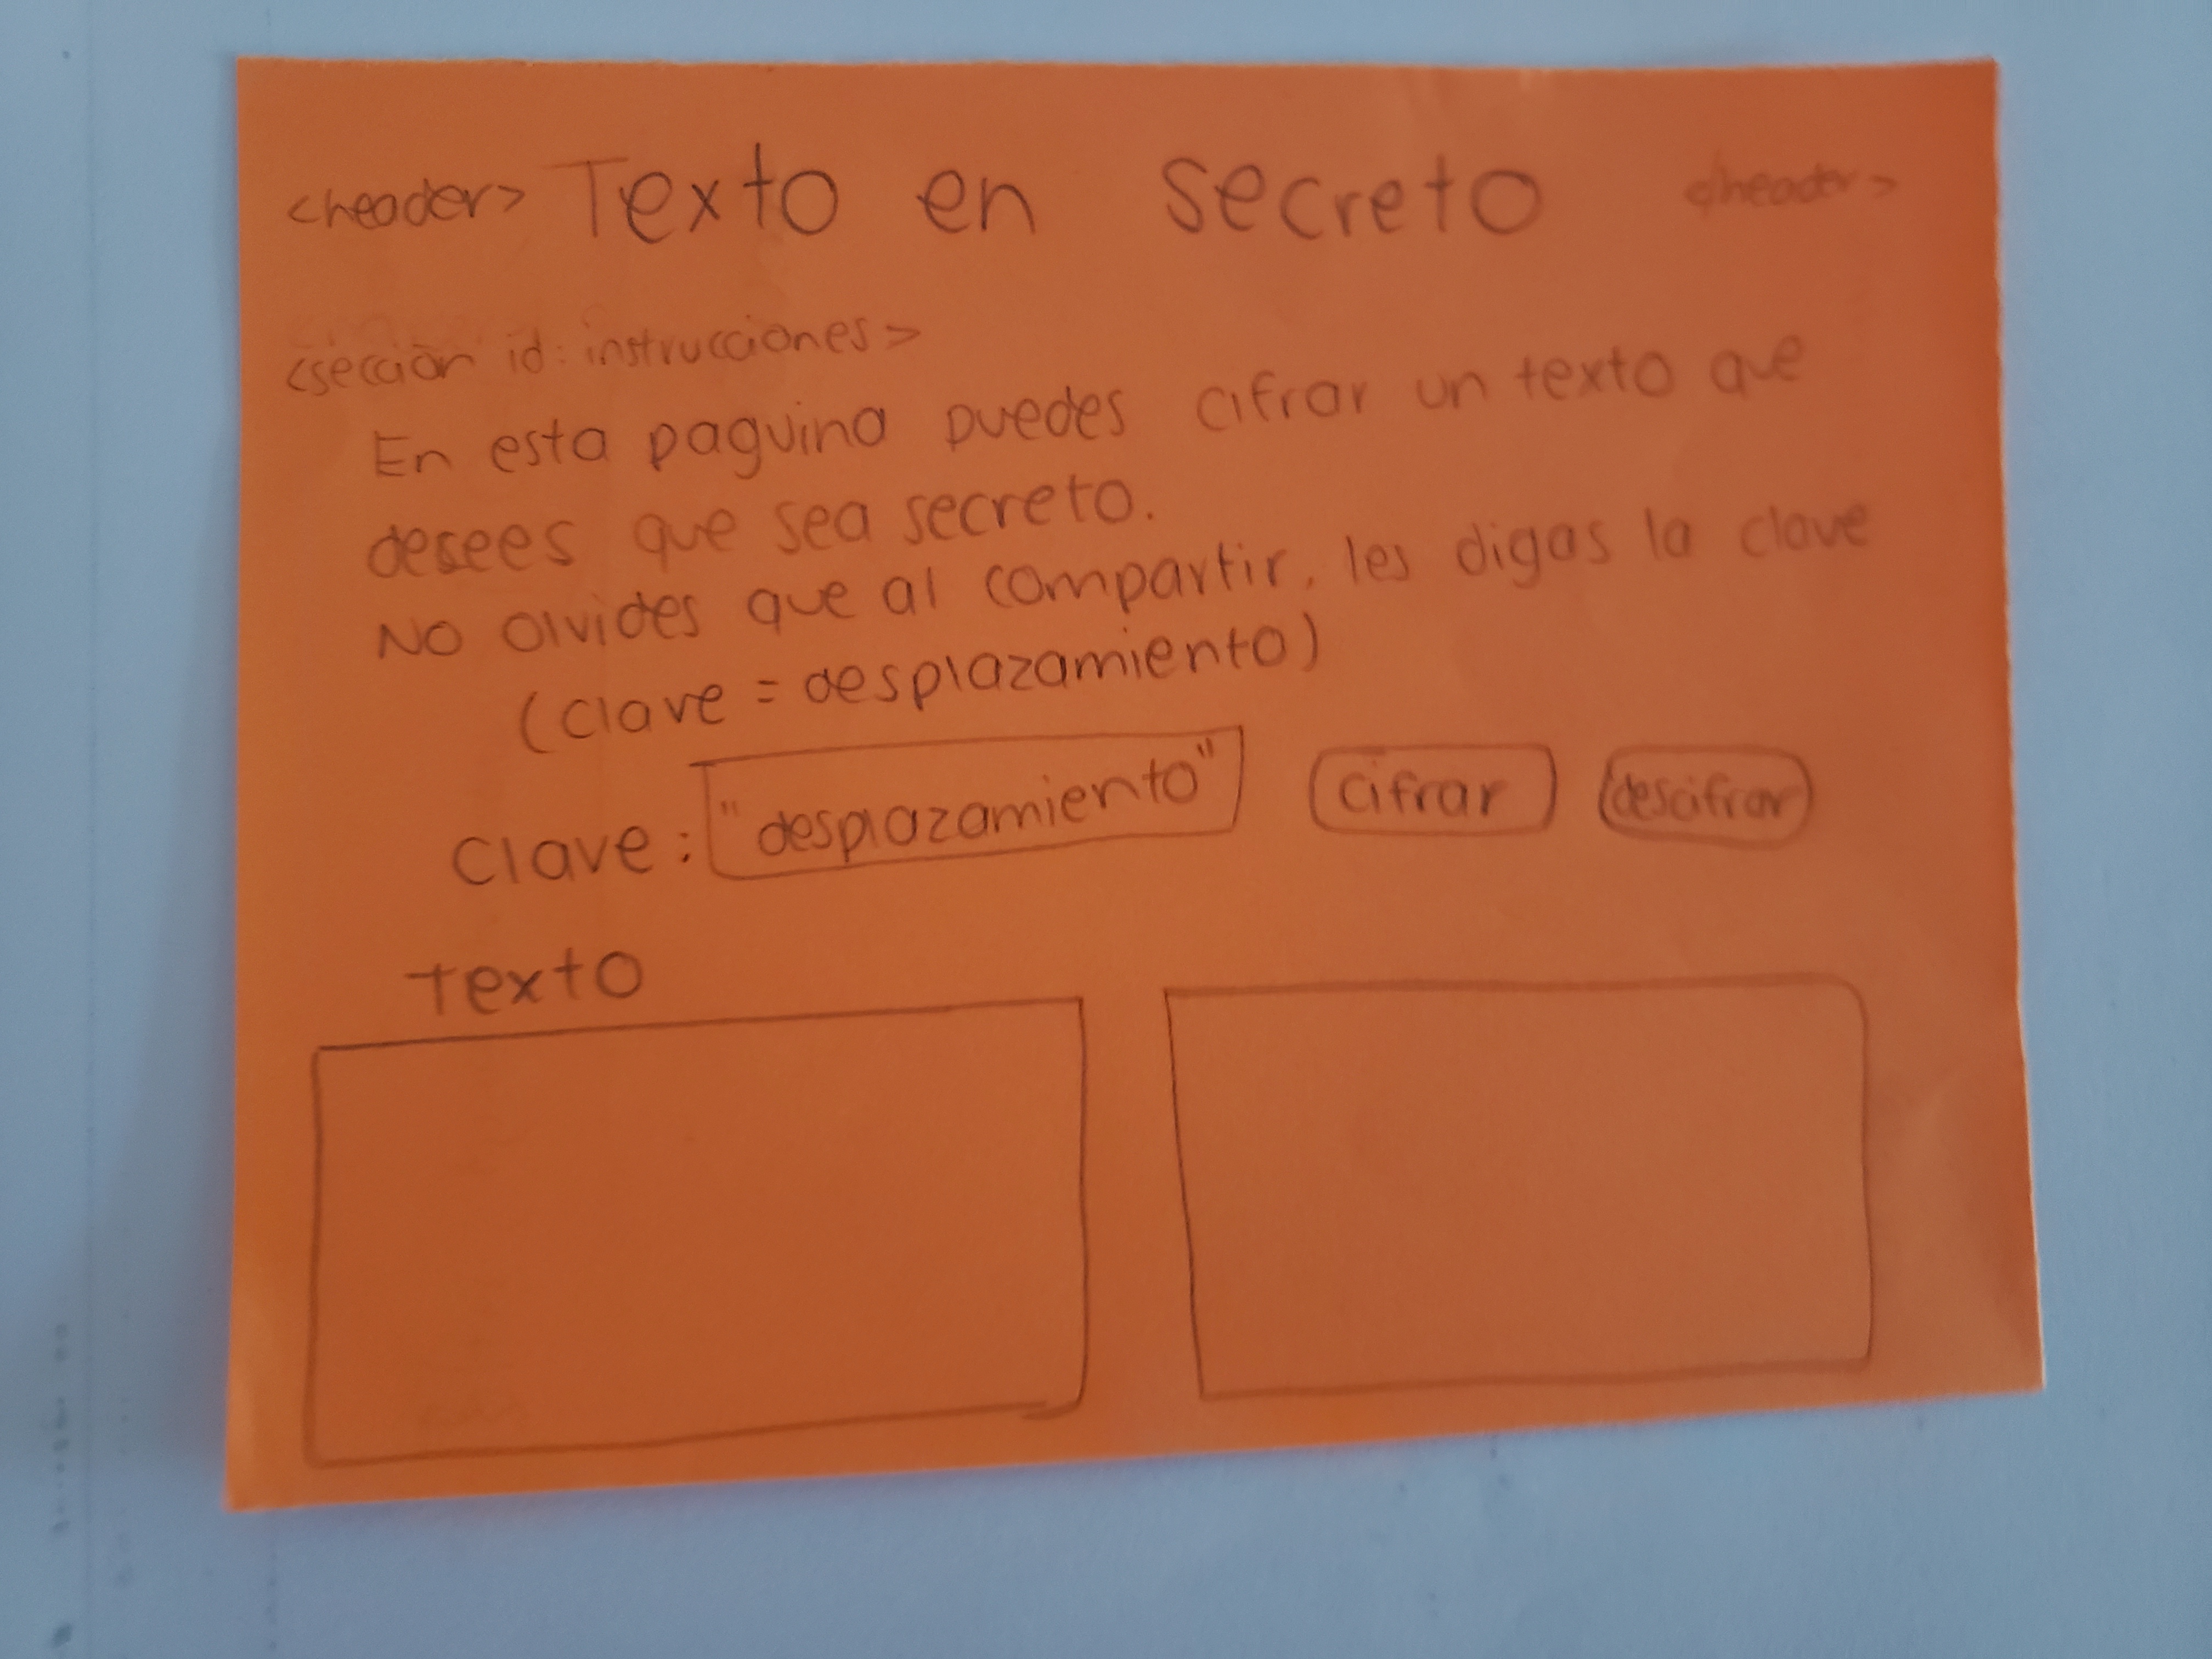 <header> Texto en secreto <header>
<sección id: instrucciones>
En esta paguina puedes cifrar un texto que
desees que sea secreto.
No olvides que al compartir, les digas la clave
(clave = desplazamiento)
Clave: "desplazamiento" cifrar descifrar
Texto